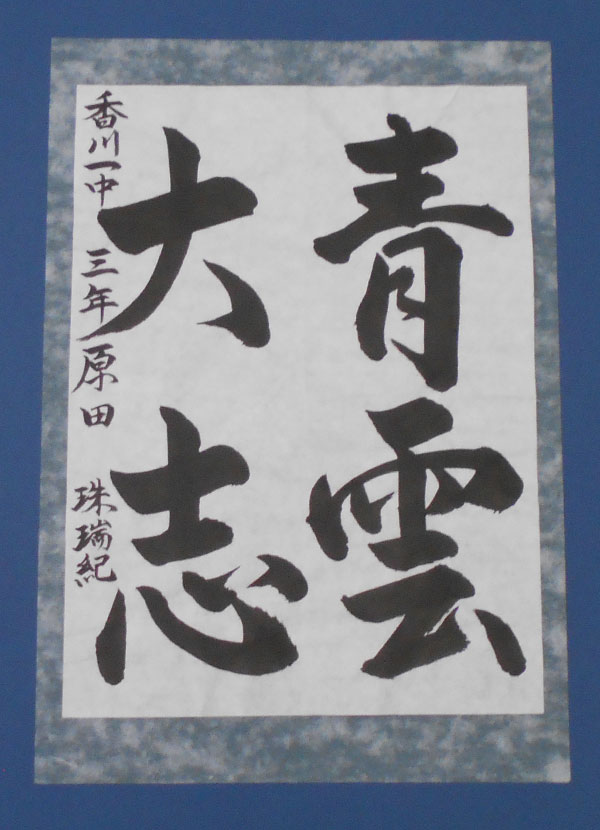 青雲
大志
香川一中 三年 原田 珠瑞紀